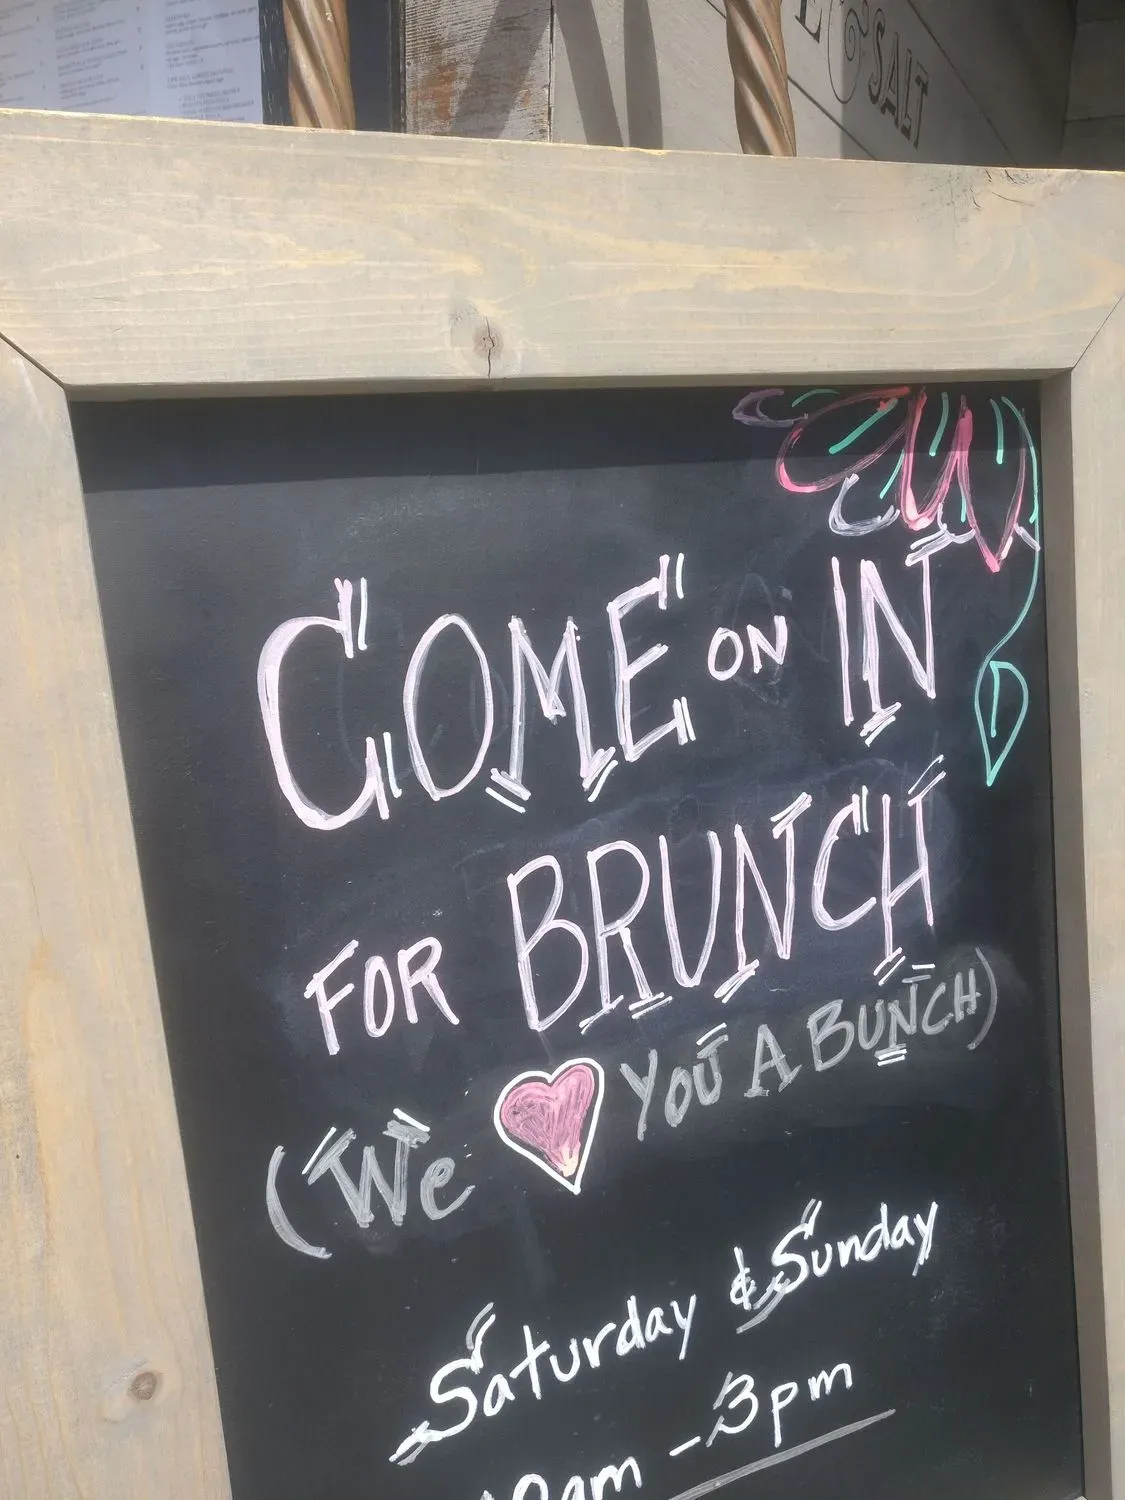 & SALT
COME ON IN
FOR BRUNCH
(We ♥ YOU A BUNCH)
Saturday & Sunday
10am - 3pm